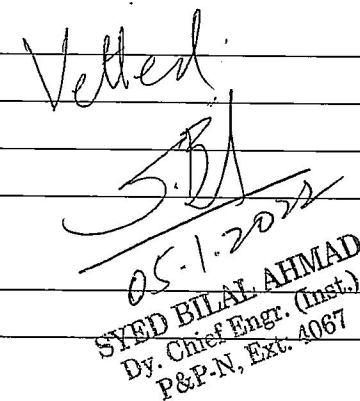 Vetted
S.BA
05.1.2022
SYED BILAL AHMAD
Dy. Chief Engr. (Inst.)
P&P-N, Ext: 4067